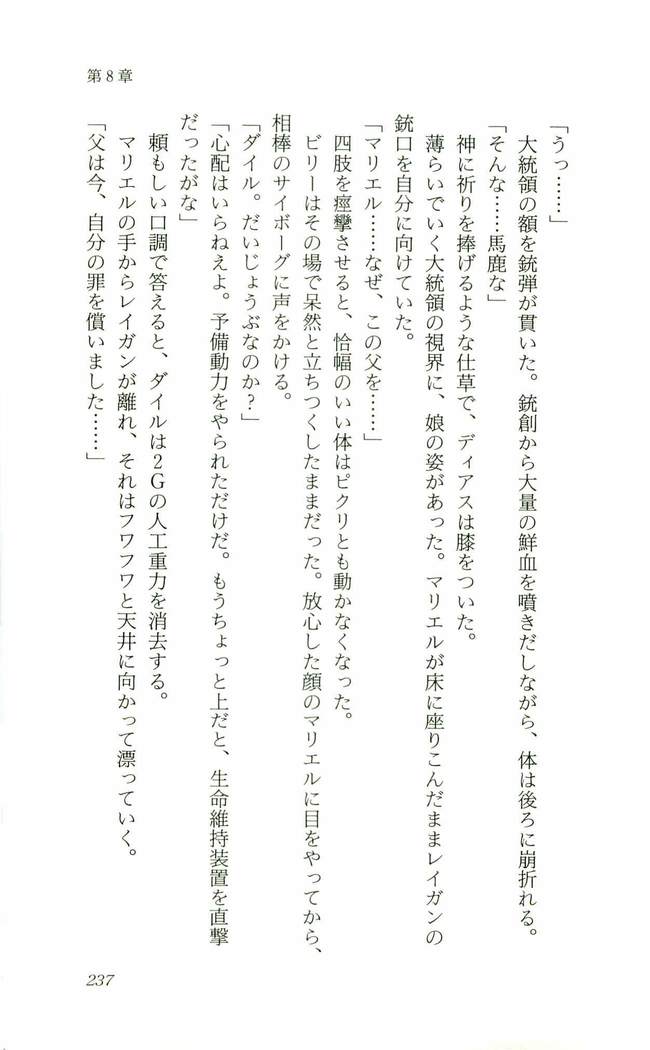 第8章
「うっ……」
　大統領の額を銃弾が貫いた。銃創から大量の鮮血を噴きだしながら、体は後ろに崩折れる。
「そんな……馬鹿な」
　神に祈りを捧げるような仕草で、ディアスは膝をついた。
　薄らいでいく大統領の視界に、娘の姿があった。マリエルが床に座りこんだままレイガンの
銃口を自分に向けていた。
「マリエル……なぜ、この父を……」
　四肢を痙攣させると、恰幅のいい体はピクリとも動かなくなった。
　ビリーはその場で呆然と立ちつくしたままだった。放心した顔のマリエルに目をやってから、
相棒のサイボーグに声をかける。
「ダイル。だいじょうぶなのか？」
「心配はいらねえよ。予備動力をやられただけだ。もうちょっと上だと、生命維持装置を直撃
だったがな」
　頼もしい口調で答えると、ダイルは2Gの人工重力を消去する。
　マリエルの手からレイガンが離れ、それはフワフワと天井に向かって漂っていく。
「父は今、自分の罪を償いました……」
237